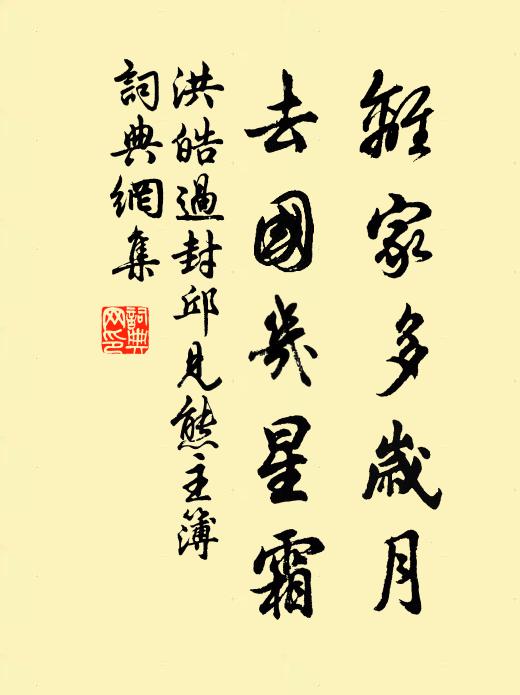 離家多歲月
去國幾星霜
洪皓過封邱見熊主簿
詞典網集
詞典
网印